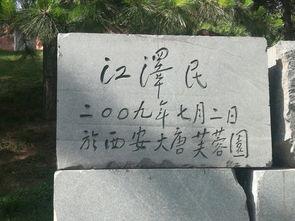 江澤民
二〇〇九年七月二日
於西安大唐芙蓉園